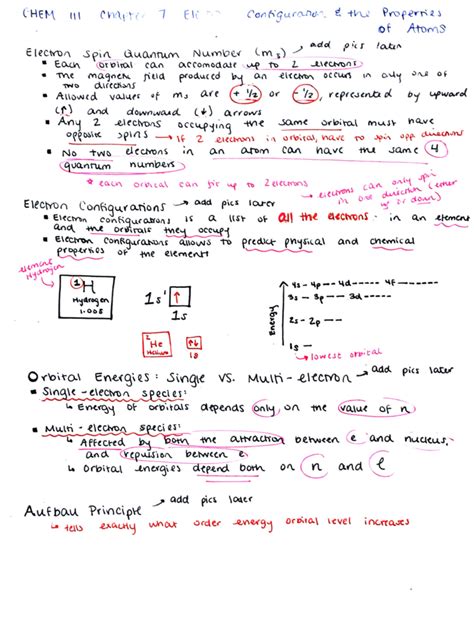 CHEM 111 Chapter 7 Configuration & the Properties
of Atoms
Electron Spin Quantum Number (ms) → add pics later
▪ Each orbital can accomodate up to 2 electrons
▪ The magnetic field produced by an electron occurs in only one of
two directions
▪ Allowed values of ms are +1/2 or -1/2, represented by upward
(↑) and downward (↓) arrows
▪ Any 2 electrons occupying the same orbital must have
opposite spins → If 2 electrons in orbital, have to spin opp directions
▪ No two electrons in an atom can have the same 4
quantum numbers
* each orbital can fit up to 2 electrons
→ electrons can only spin
in one direction (either
up or down)
Electron Configurations → add pics later
▪ Electron configurations is a list of all the electrons in an element
and the orbitals they occupy
▪ Electron configurations allows to predict physical and chemical
properties of the element
element
Hydrogen
1
H
Hydrogen
1.008
1s¹ ↑
1s
2
He
Helium
↑↓
1s
Energy
4s - 4p --- 4d ----- 4f -------
3s - 3p --- 3d -----
2s - 2p ---
1s -
↳ lowest orbital
Orbital Energies: Single vs. Multi-electron → add pics later
▪ Single-electron species:
↳ Energy of orbitals depends only on the value of n
▪ Multi-electron species:
↳ Affected by both the attraction between e and nucleus,
and repulsion between e
↳ Orbital energies depend both on n and l
Aufbau Principle → add pics later
↳ tells exactly what order energy orbital level increases